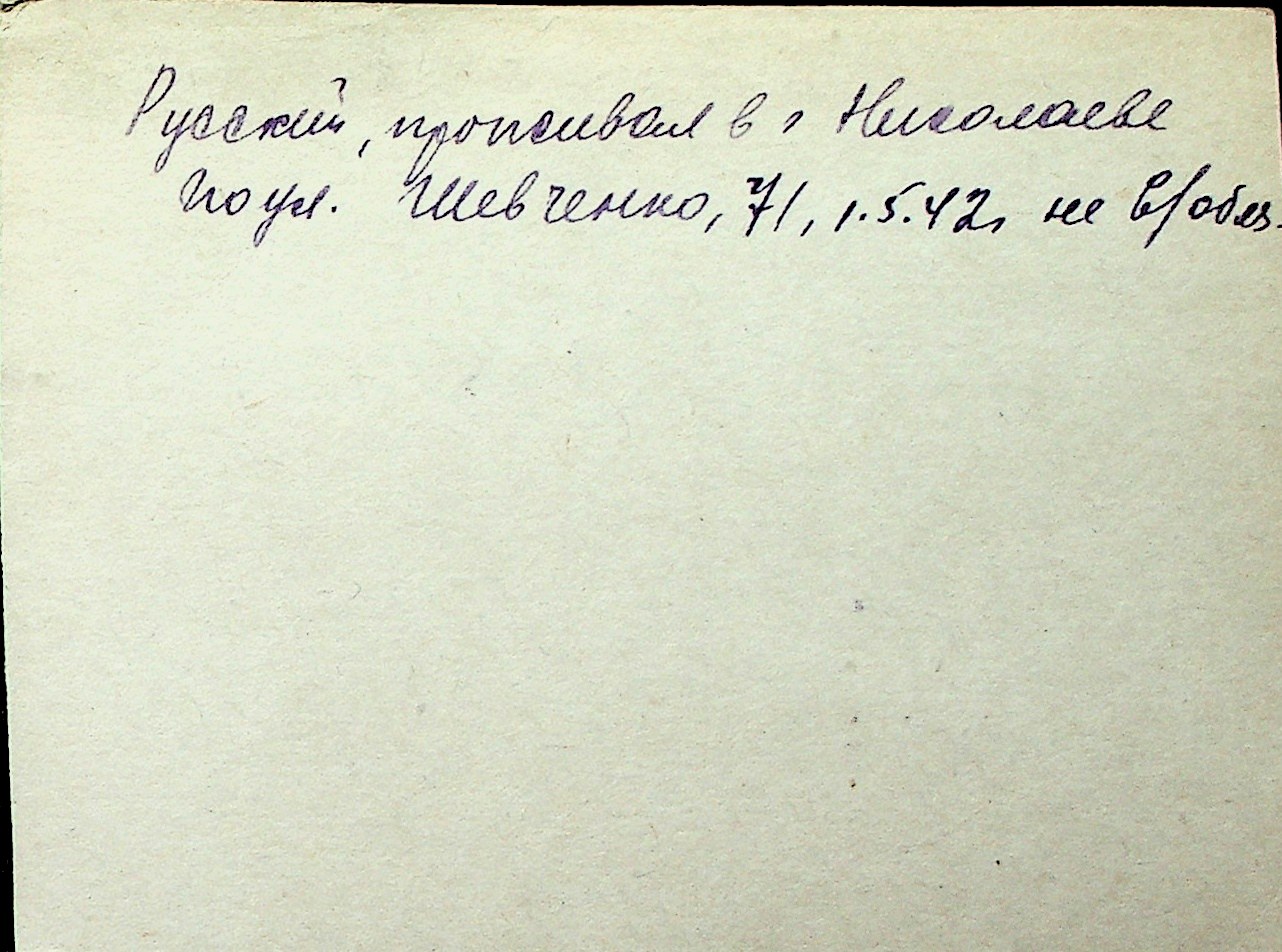 Русский, проживал в г Николаеве
по ул. Шевченко, 71, 1.5.42, не в/обяз.